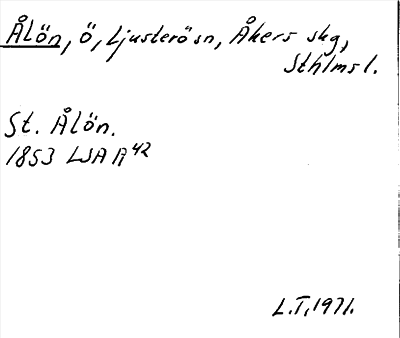 Ålön, ö, Ljusterö sn, Åkers skg,
Sthlms l.
St. Ålön.
1853 LSA A42
L.T, 1971.